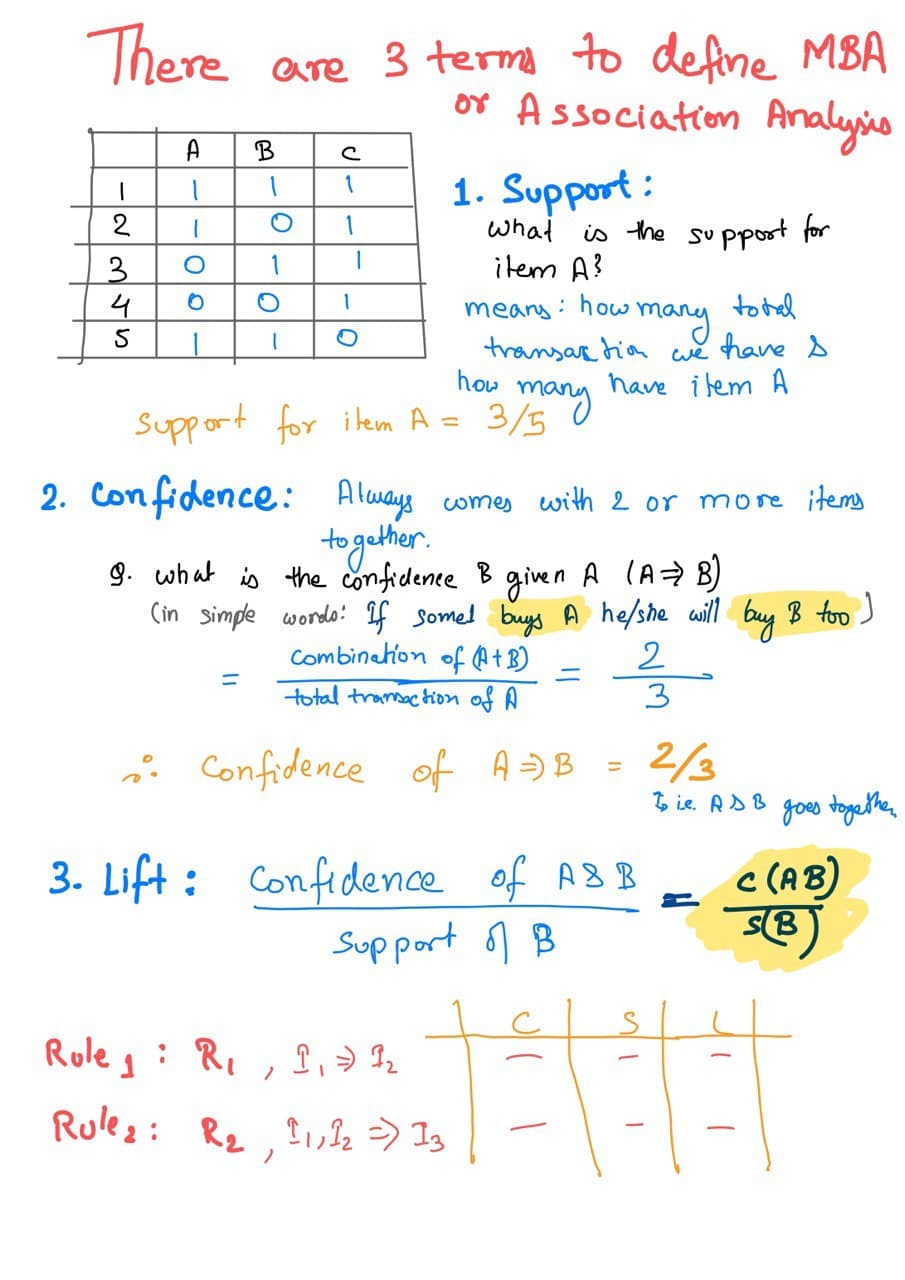 There are 3 terms to define MBA
or Association Analysis
A B C
1 1 1 1
2 1 0 1
3 0 1 1
4 0 0 1
5 1 1 0
1. Support:
what is the support for
item A?
means: how many total
transaction we have &
how many have item A
Support for item A = 3/5
2. Confidence: Always comes with 2 or more items
together.
Q. what is the confidence B given A (A⇒B)
(in simple words: If somel buys A he/she will buy B too)
= combination of (A+B) / total transaction of A = 2/3
∴ Confidence of A⇒B = 2/3
↳ i.e. A & B goes together
3. Lift: Confidence of A & B / Support of B = C(AB) / S(B)
C S L
Rule 1: R1, I1 ⇒ I2 — — —
Rule 2: R2, I1, I2 ⇒ I3 — — —